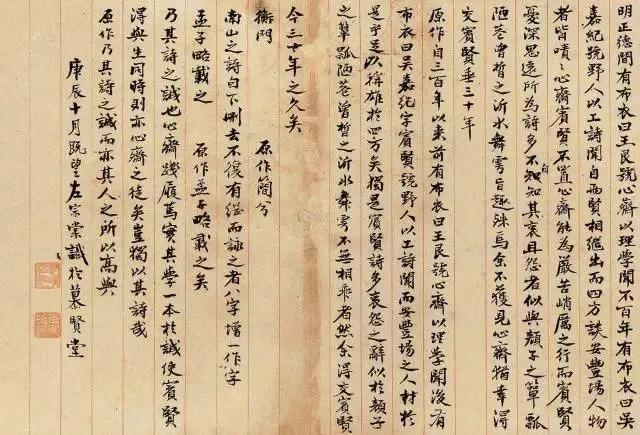 明正德間有布衣曰王艮號心齋以理學聞不百年有布衣曰吳
嘉紀號野人以工詩聞自兩賢相繼出而四方談安豐場人物
者皆嘖嘖心齋賓賢不置心齋能為嚴苦峭厲之行而賓賢
憂深思遠所為詩多不自知其哀且怨者似與顏子之簞瓢
陋巷曾皙之沂水舞雩旨趣殊焉余不獲見心齋猶幸得
交賓賢垂三十年
原作自三百年以來前有布衣曰王艮號心齋以理學聞後有
布衣曰吳嘉紀字賓賢號野人以工詩聞而安豐場之人材於
是乎足以稱雄於四方矣獨是賓賢詩多哀怨之辭似於顏子
之簞瓢陋巷曾皙之沂水舞雩不無相乖者然余得交賓賢
今三十年之久矣
衡門 原作簡兮
南山之詩句下刪去不復有繼而詠之者八字增一作字
孟子略載之 原作孟子略載之矣
乃其詩之誠也心齋踐履篤實其學一本於誠使賓賢
得與生同時則亦心齋之徒矣豈獨以其詩哉
原作乃其詩之誠而亦其人之所以高與
庚辰十月既望左宗棠識於慕賢堂